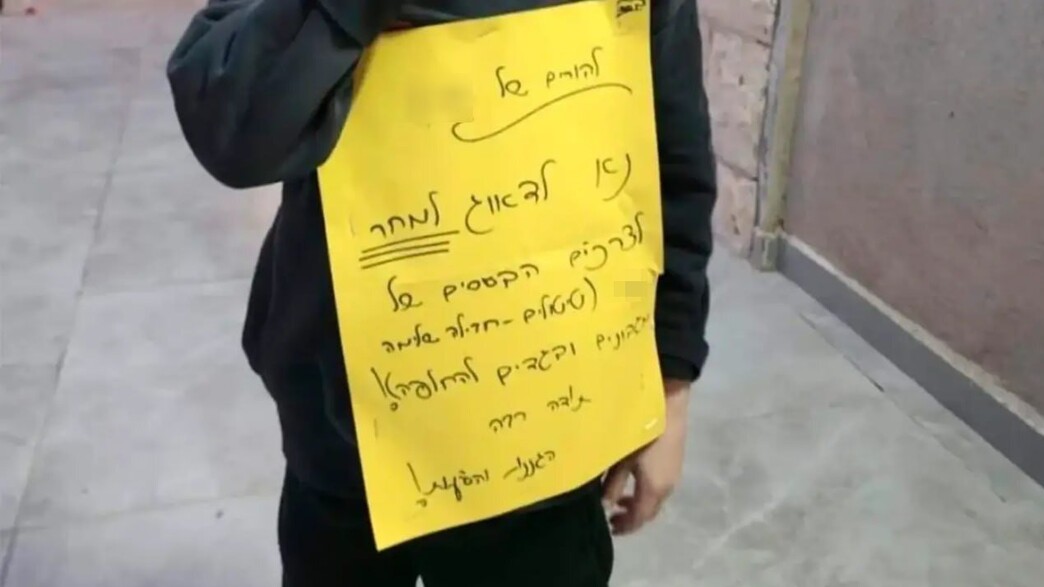 להורים של
נא לדאוג למחר
לצרכים הבסיסים של
(טיטולים - חבילה שלמה
מגבונים ובגדים להחלפה)!
תודה רבה
הגננת והסייעת!